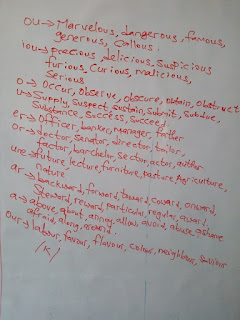 ou → Marvelous, dangerous, famous,
generous, Callous.
iou → precious, delicious, Suspicious
furious, Curious, malicious,
Serious
o → Occur, Observe, obscure, obtain, Obstruct
u → Supply, Suspect, Sustain, Submit, Subdue,
Substance, Success, Succeed
er → Officer, banker, manager,
or → doctor, Senator, director, tailor,
factor, barchelor, Sector, actor, author
ure → future, lecture, furniture, pasture, Agriculture,
nature
ar → backward, forward, toward, coward, onward
Steward, reward, particular, regular, award
a → above, about, among, allow, avoid, abuse, ashame
afraid, along, around.
Our → labour, favour, flavour, colour, neighbour, Saviour
/K/